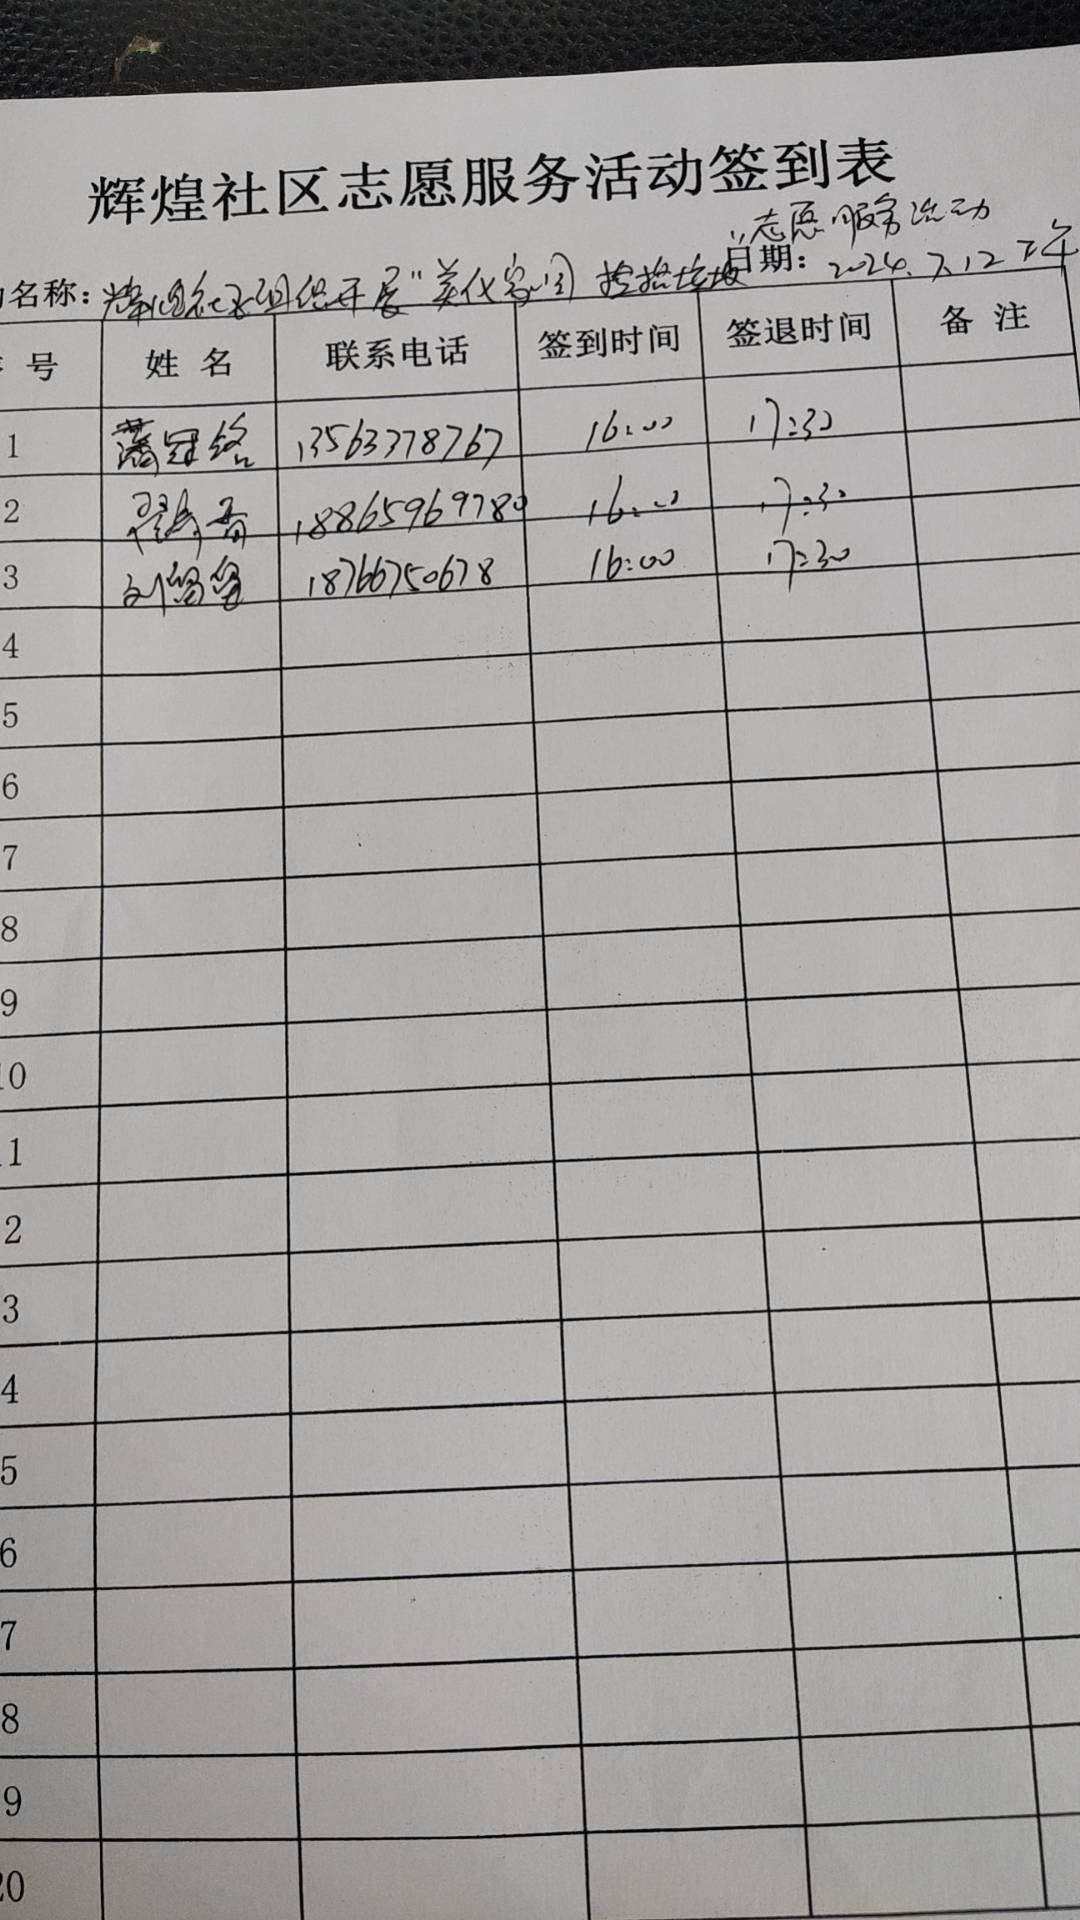 辉煌社区志愿服务活动签到表
志愿服务活动
名称：辉煌社区组织开展"美化家园 日期：2024.7.12 下午
号 姓 名 联系电话 签到时间 签退时间 备 注
1 13563378767 16:00 17:30
2 18865969780 16:00 17:30
3 刘 18766750678 16:00 17:30
4
5
6
7
8
9
10
11
2
3
4
5
6
7
8
9
20